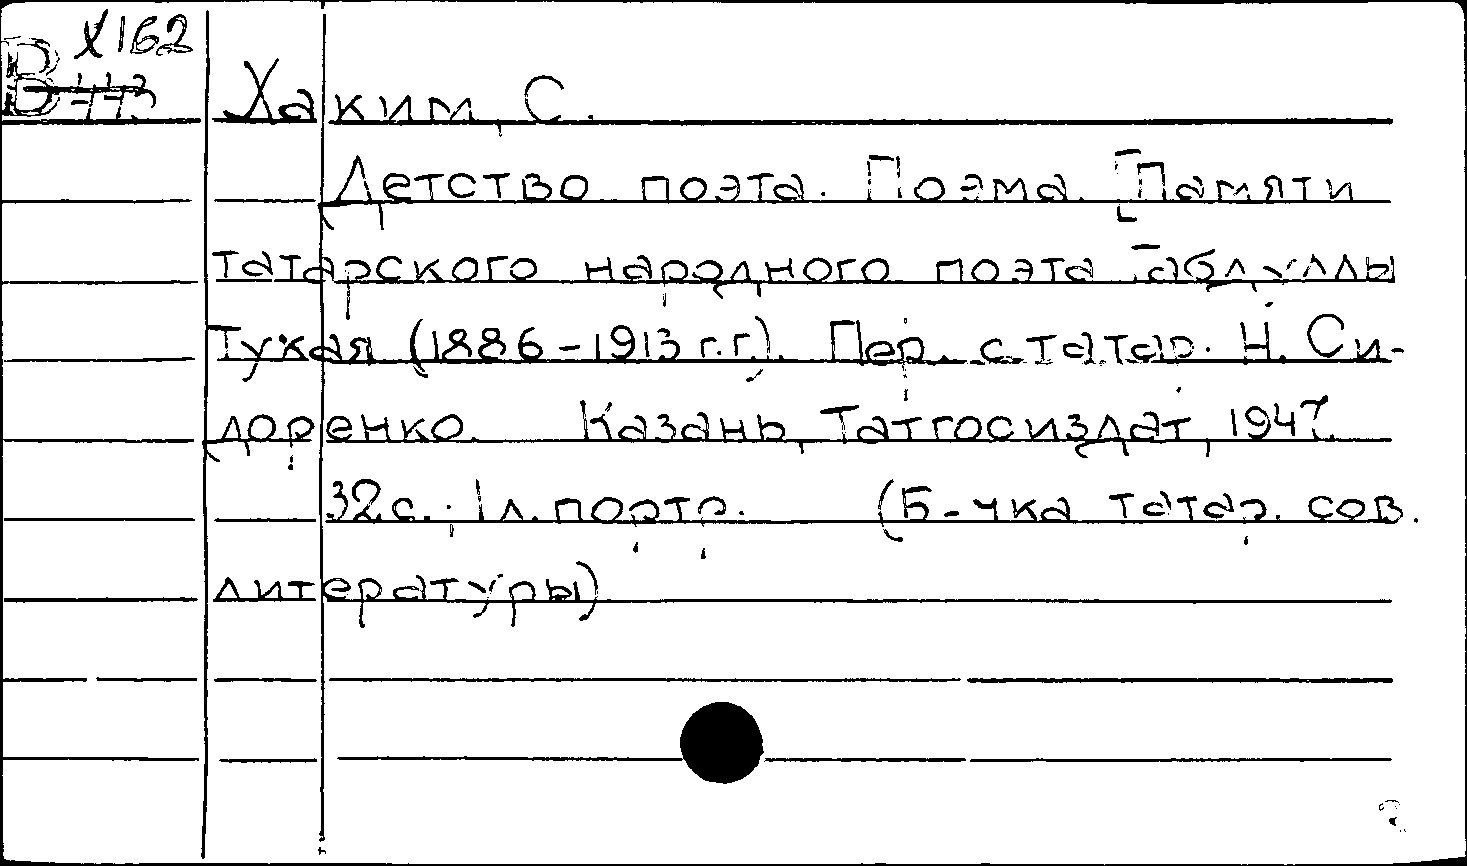 Х162
В 443
Хаким, С.
Детство поэта. Поэма. [Памяти
татарского народного поэта Габдуллы
Тукая (1886-1913 г.г.). Пер. с татар. Н. Си-
доренко. Казань, Татгосиздат, 1947.
32 с.; 1 л. портр. (Б-чка татар. сов.
литературы)